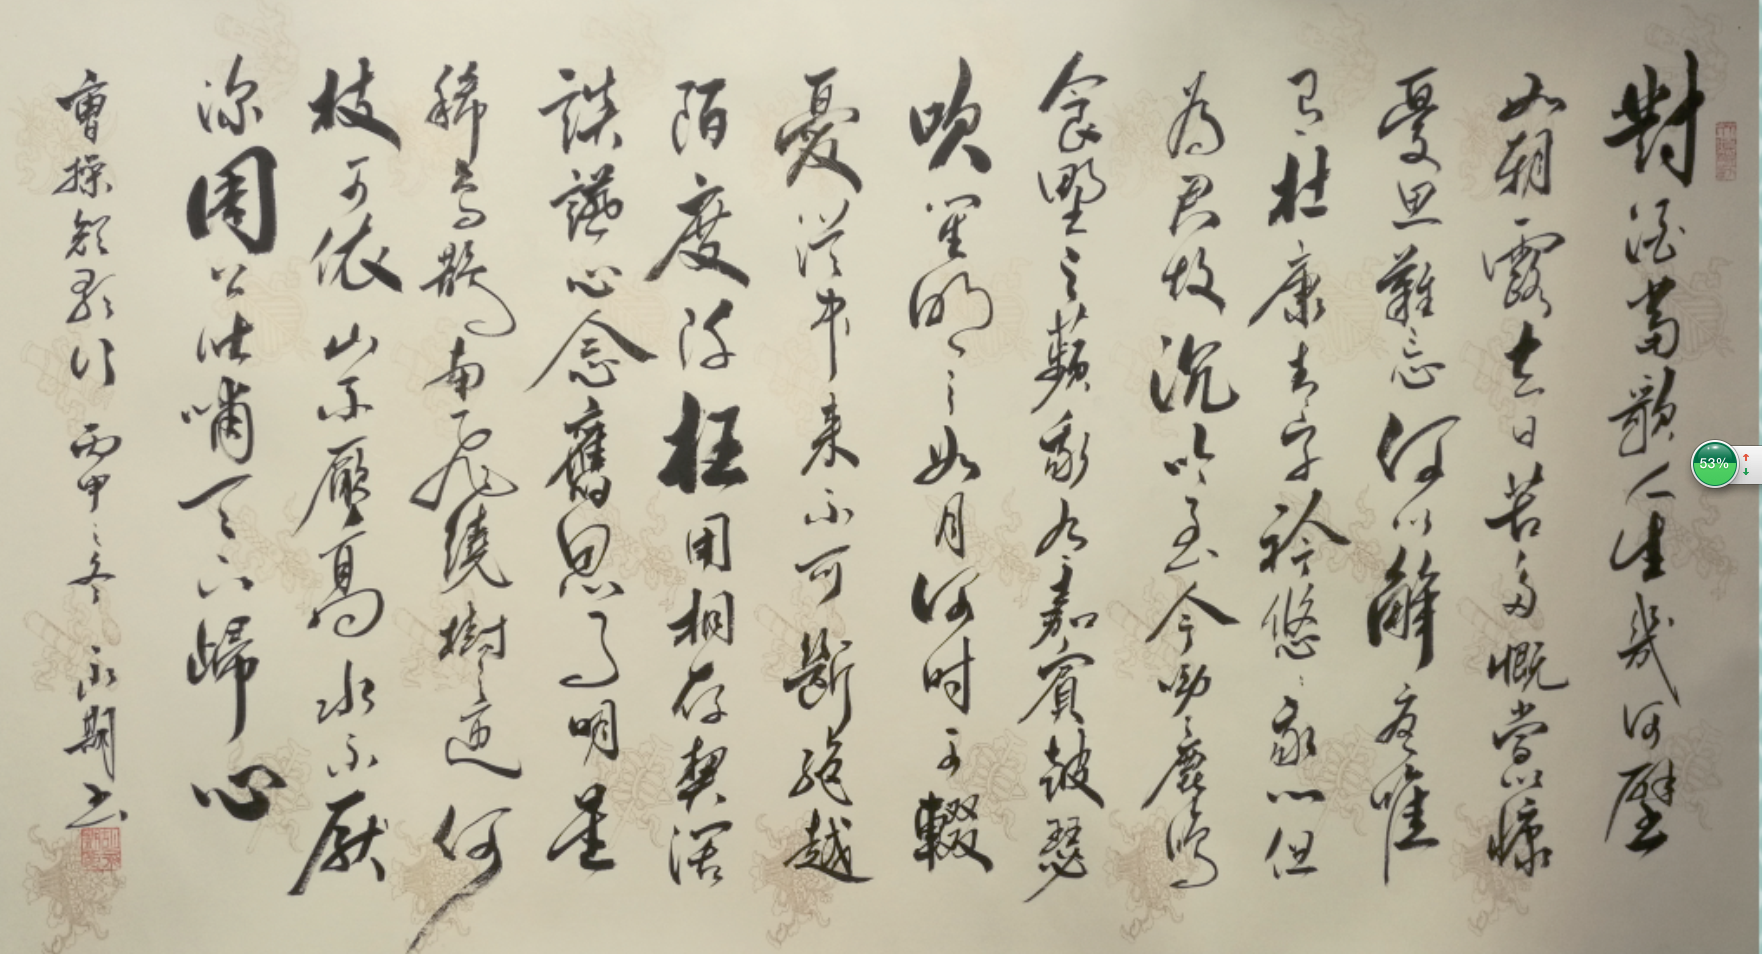 對酒當歌人生幾何譬
如朝露去日苦多慨當以慷
憂思難忘何以解憂唯
有杜康青青子衿悠悠我心但
為君故沉吟至今呦呦鹿鳴
食野之蘋我有嘉賓鼓瑟
吹笙明明如月何時可輟
憂從中來不可斷絕越
陌度阡枉用相存契闊
談讌心念舊恩月明星
稀烏鵲南飛繞樹三匝何
枝可依山不厭高水不厭
深周公吐哺天下歸心
曹操短歌行 丙申之冬 永期書
53%